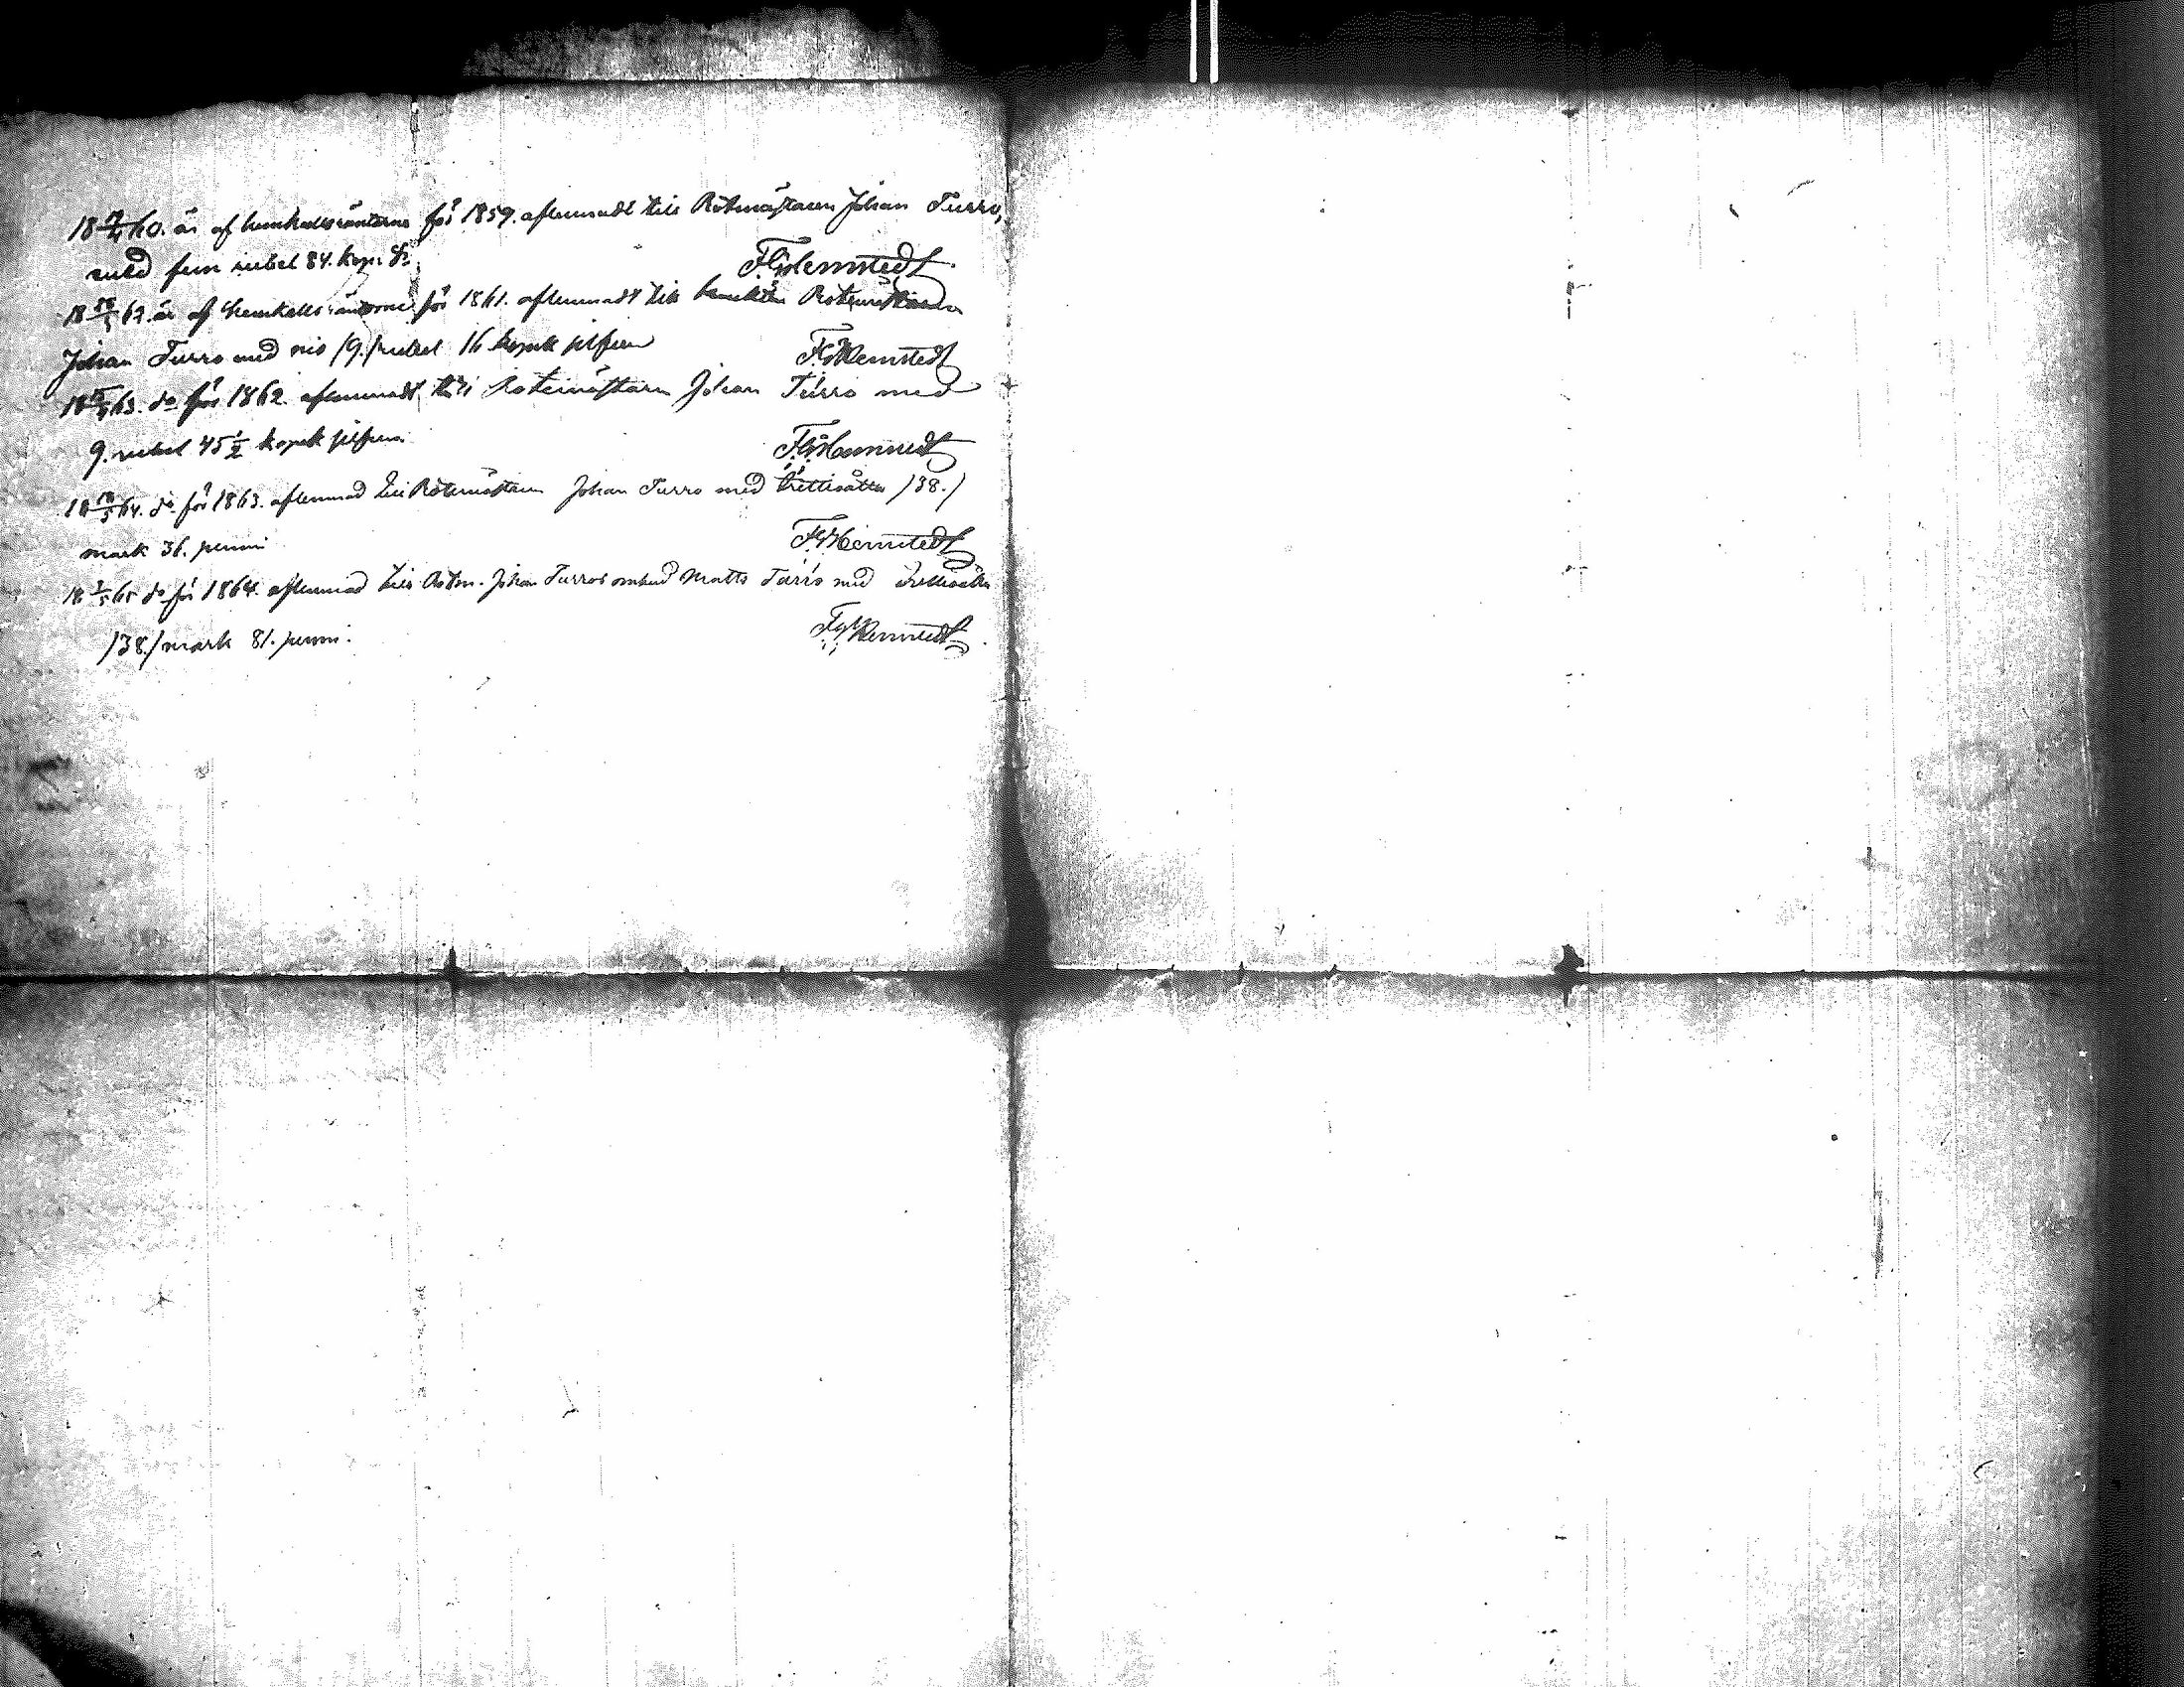 18 60. är af hemkallsräntorna för 1859. aflemnadt till Rotemästaren Johan Turro,
med fem rubel 84. kop. Sr.
FGHemstedt
18 62. är af hemkallsräntorne för 1861. aflemnadt till Rotemästaren
Johan Turro med nio /9./ rubel 16 kopek silfver
FGHemstedt
18 63. do för 1862. aflemnadt till Rotemästaren Johan Turro med
9. rubel 45 1/2 kopek silfver.
FGHemstedt
18 64. do för 1863. aflemnad till Rotemästaren Johan Turro med trettioåtta /38./
mark 36. penni
FGHemstedt
18 65 do för 1864. aflemnad till Rotem. Johan Turros ombud Matts Turro med trettioåtta
/38./ mark 81. penni.
FGHemstedt